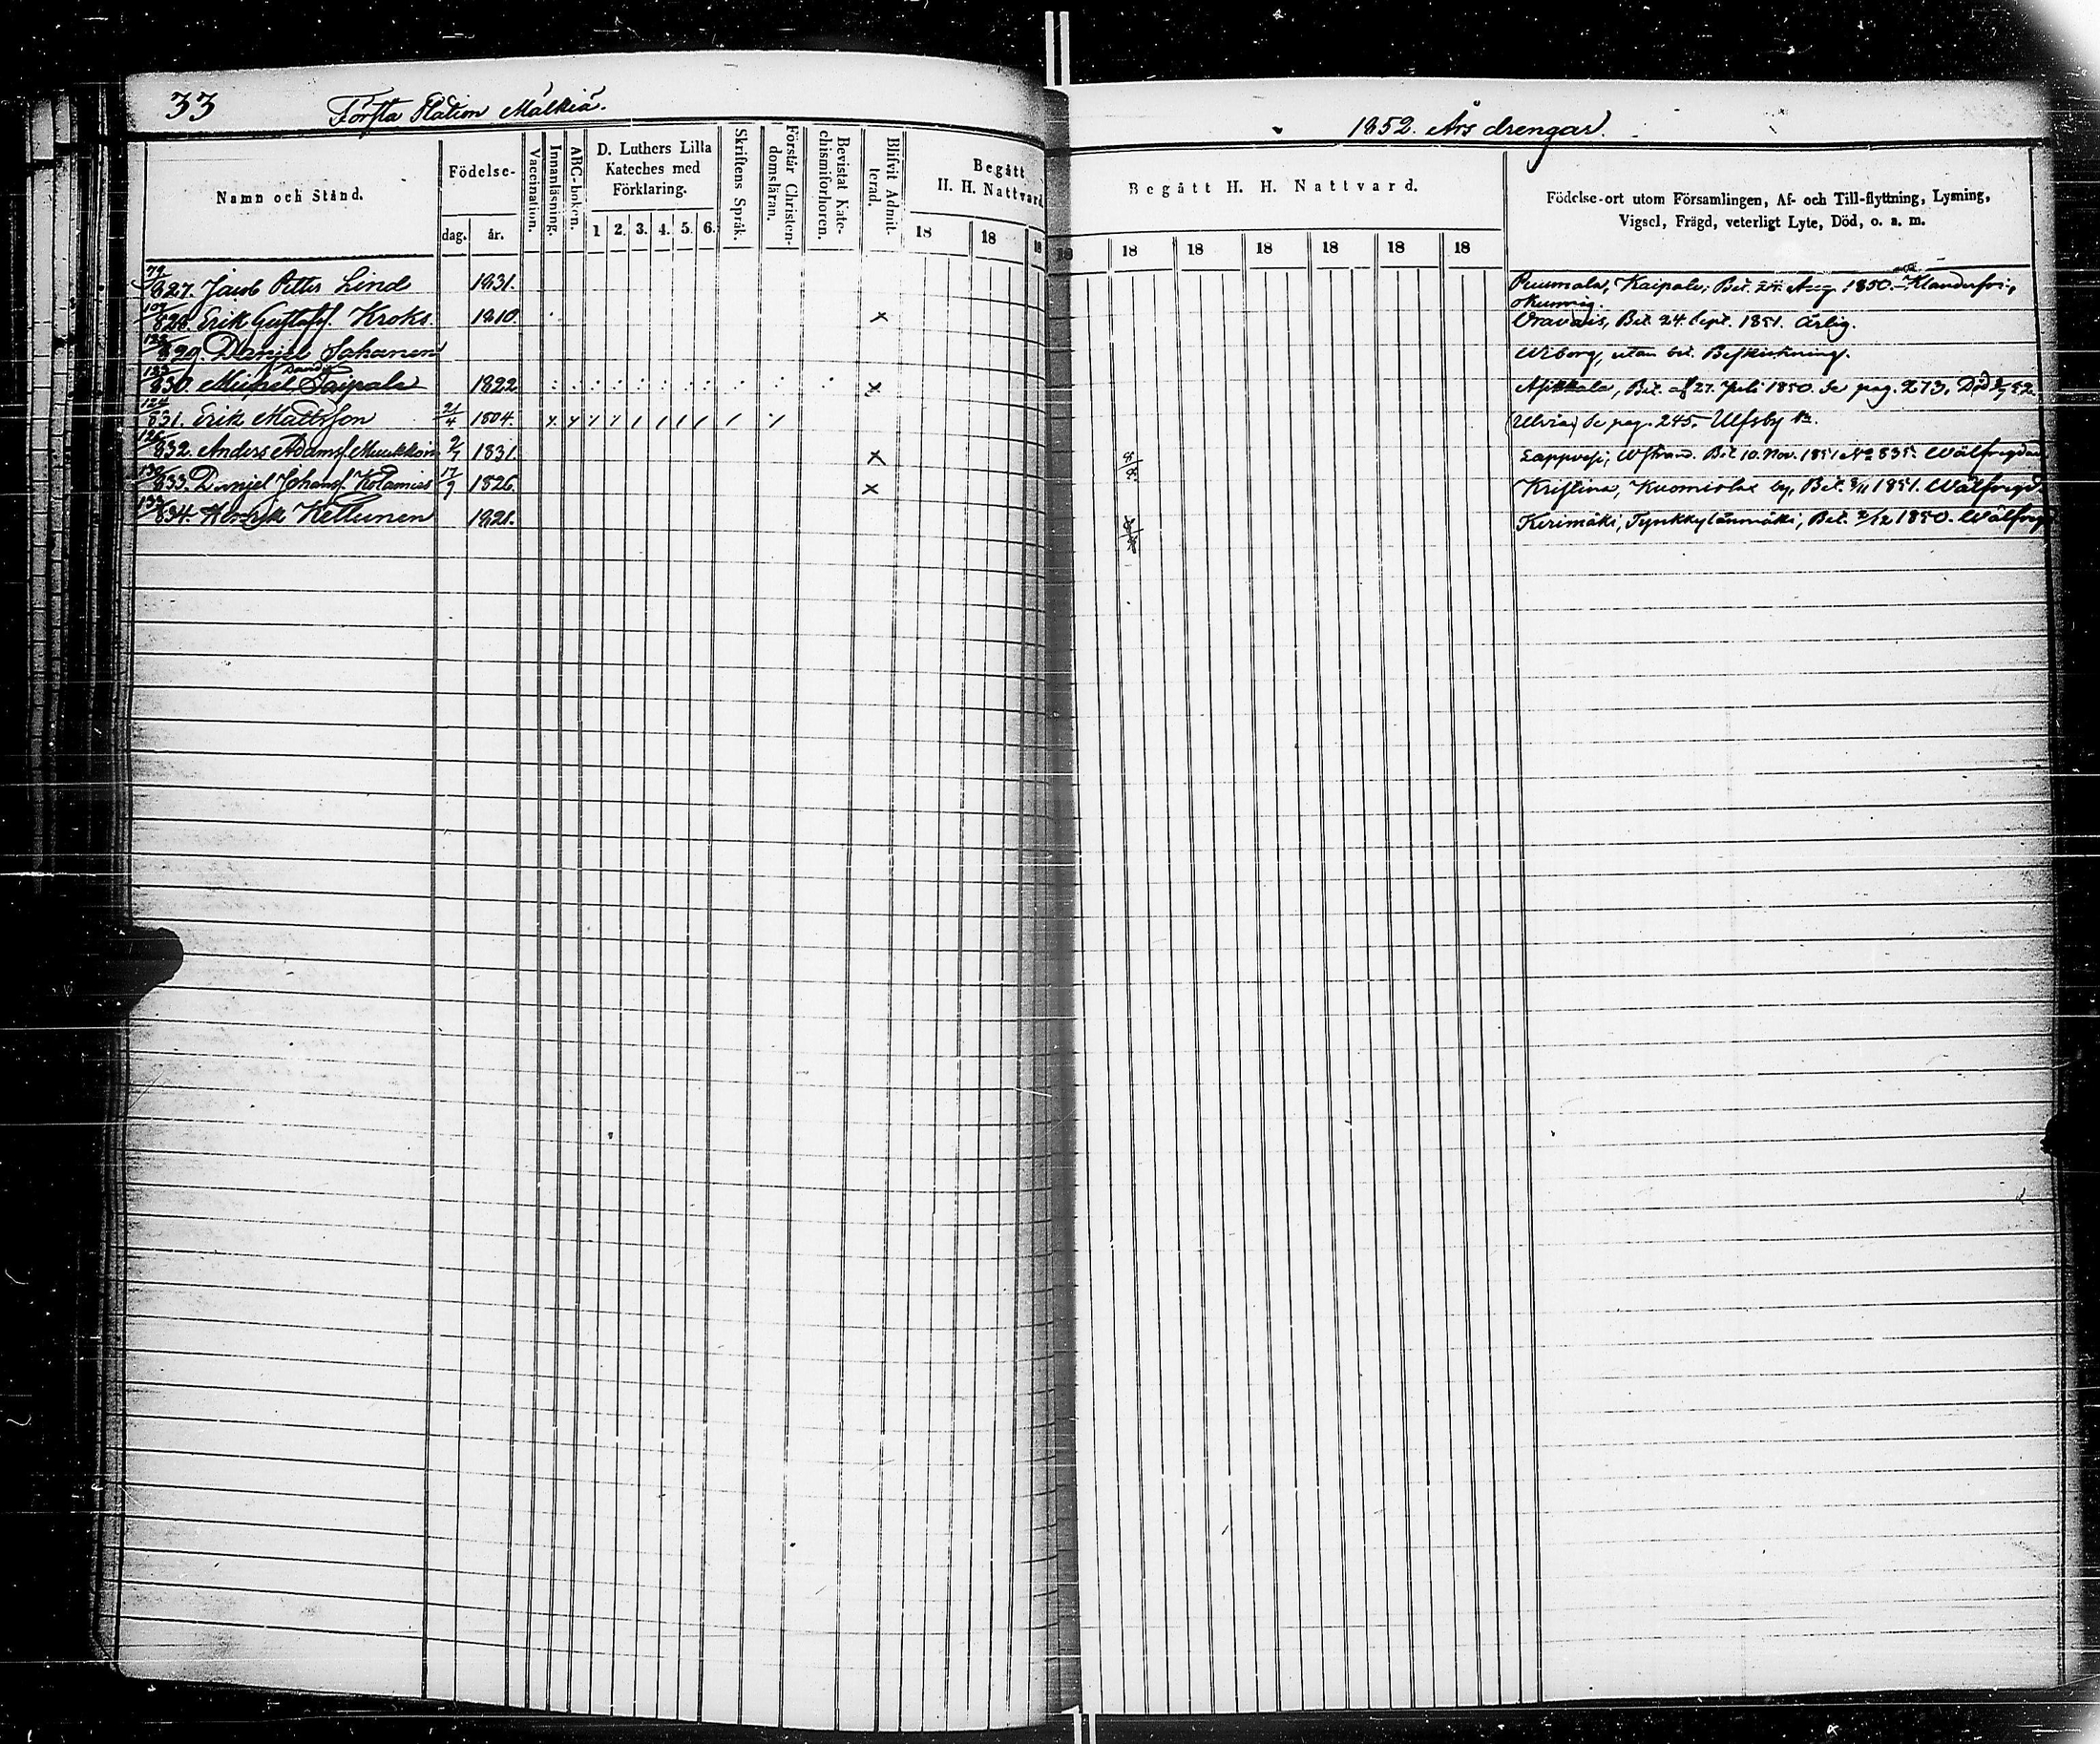 33
Första Station Mälkiä.
1852. Års drengar.
Namn och Stånd.
Födelse-
dag. år.
Vaccination.
Innanläsning.
ABC-boken.
D. Luthers Lilla
Kateches med
Förklaring.
1 2. 3. 4. 5. 6.
Skriftens Språk.
Förstår Christen-
domsläran.
Bevistat Kate-
chismiförhören.
Blifvit Admit-
terad.
Begått
H. H. Nattvard.
18 18 18
Begått H. H. Nattvard.
18 18 18 18 18 18 18
Födelse-ort utom Församlingen, Af- och Till-flyttning, Lysning,
Vigsel, Frägd, veterligt Lyte, Död, o. s. m.
79/827. Jacob Petter Lind 1831. Puumala, Kaipala, Bet. 24 Aug 1850. Klanderfri,
okunnig.
107/828 Erik Gustafss. Kroks 1810. × Oravais, Bet. 24 Sept. 1851. Ärlig.
829. Daniel Sahanen Wiborg, utan bet. Beskickning.
830. Michel Saipala 1822 × Asikkala, Bet. af 27. Juli 1850. Se pag. 273. Död
124/831. Erik Mattsson 21/4 1804. Ulvia, Se pag. 245. Ulfsby
832. Anders Adamss. Muukkoin 1831. × Lappvesi, Wstrand. Bet 10. Nov. 1851 No 835. Wälfregdad
833. Daniel Johanss. Kolamies 17/9 1826. × Kristina, Bet. 1851. Wälfregd.
134/834. Henrik Kellunen 1821. Kerimäki, Tynkkylänmäki, Bet. 2/12 1850. Wälfregd